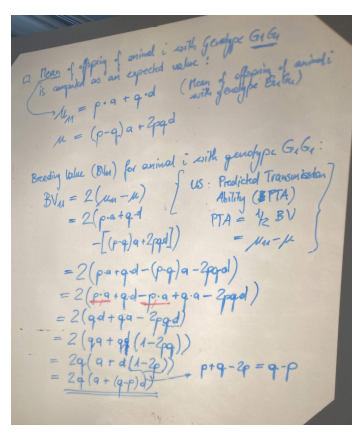 □ Mean of offspring of animal i with Genotype G₁G₁
is computed as an expected value:
μ₁₁ = p·a + q·d
(Mean of offspring of animal i
with genotype G₁G₁)
μ = (p-q)a + 2pqd
Breeding Value (BV₁₁) for animal i with genotype G₁G₁:
BV₁₁ = 2(μ₁₁ - μ)
= 2(p·a + q·d
-[(p-q)a + 2pqd])
US: Predicted Transmission
Ability (PTA)
PTA = 1/2 BV
= μ₁₁ - μ
= 2(p·a + q·d - (p-q)a - 2pqd)
= 2(p·a + q·d - p·a + q·a - 2pqd)
= 2(qd + qa - 2pqd)
= 2(qa + qd(1-2p))
= 2q(a + d(1-2p))
= 2q(a + (q-p)d)
p+q-2p = q-p